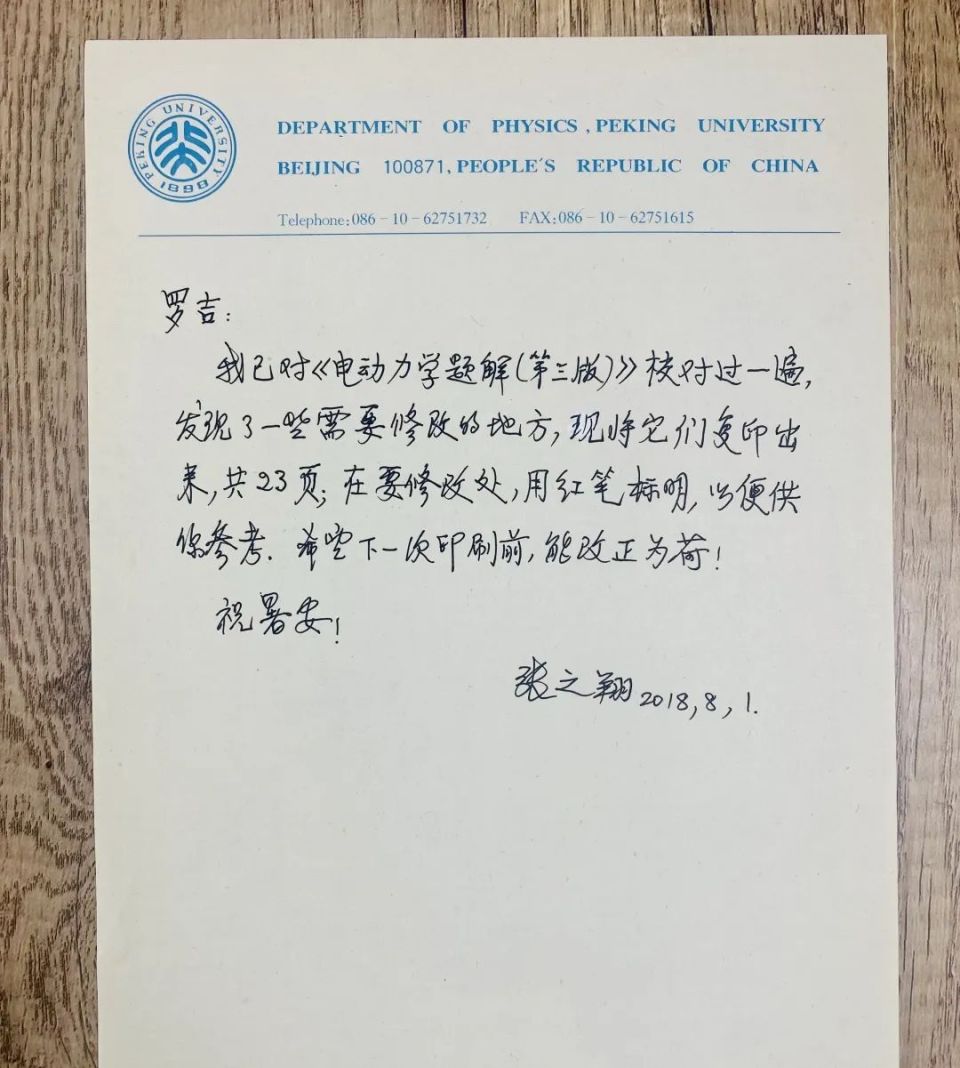 PEKING UNIVERSITY
1898
DEPARTMENT OF PHYSICS, PEKING UNIVERSITY
BEIJING 100871, PEOPLE'S REPUBLIC OF CHINA
Telephone:086-10-62751732 FAX:086-10-62751615
罗吉:
我已对《电动力学题解(第三版)》校对过一遍,
发现了一些需要修改的地方,现将它们复印出
来,共23页;在要修改处,用红笔标明,以便供
你参考.希望下一次印刷前,能改正为荷!
祝暑安!
张之翔 2018,8,1.